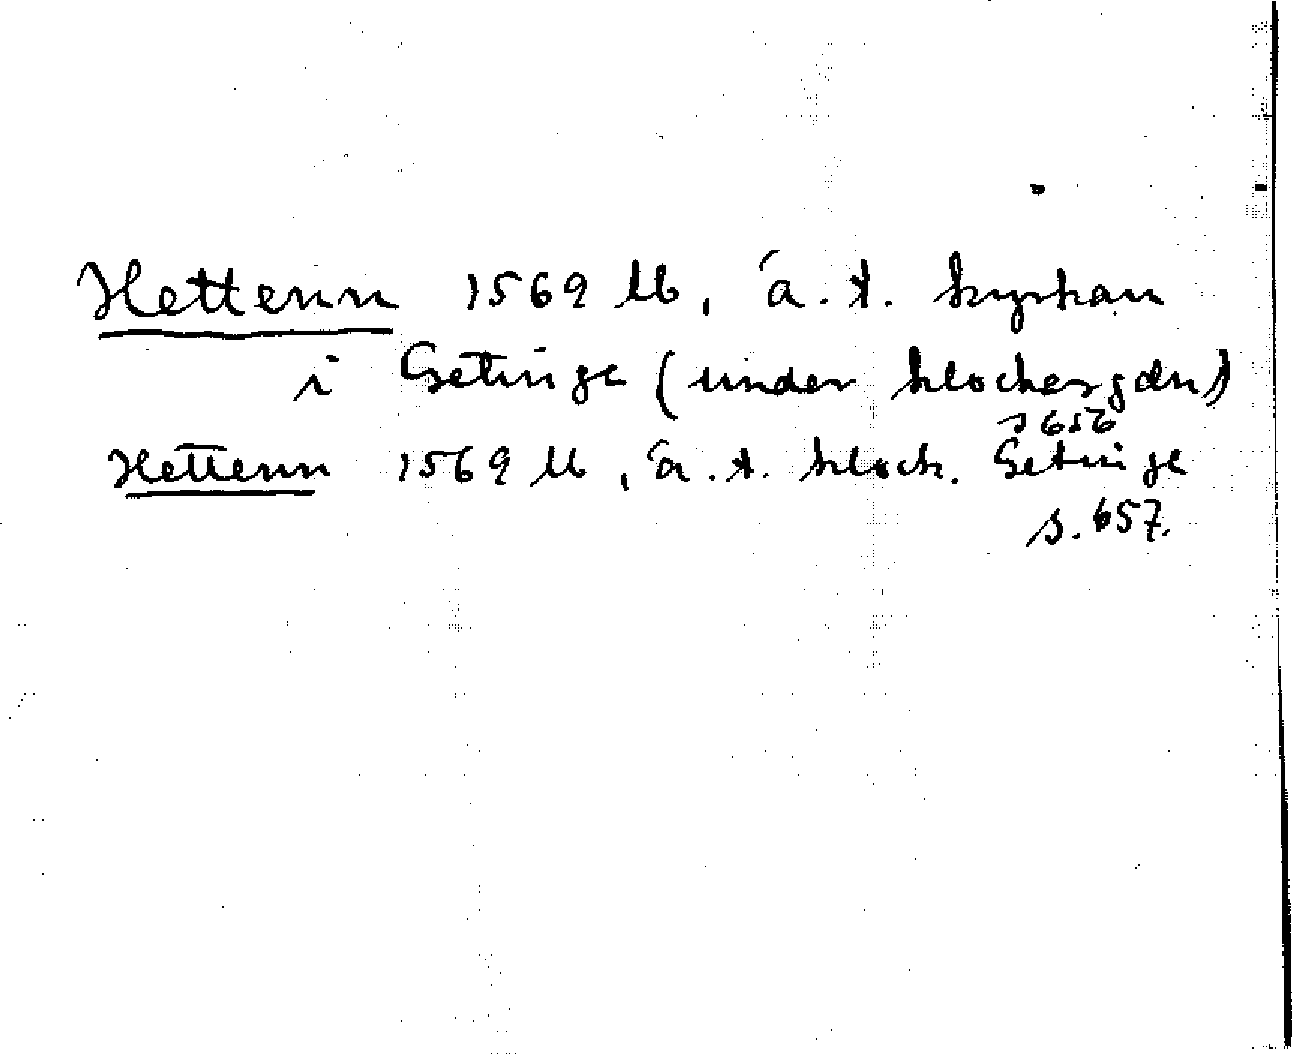 Hettenn 1569 Lb, ä.t. kyrkan
i Getinge (under klockergdn)
s 656
Hettenn 1569 Lb, ä.t. klock. Getinge
s. 657.